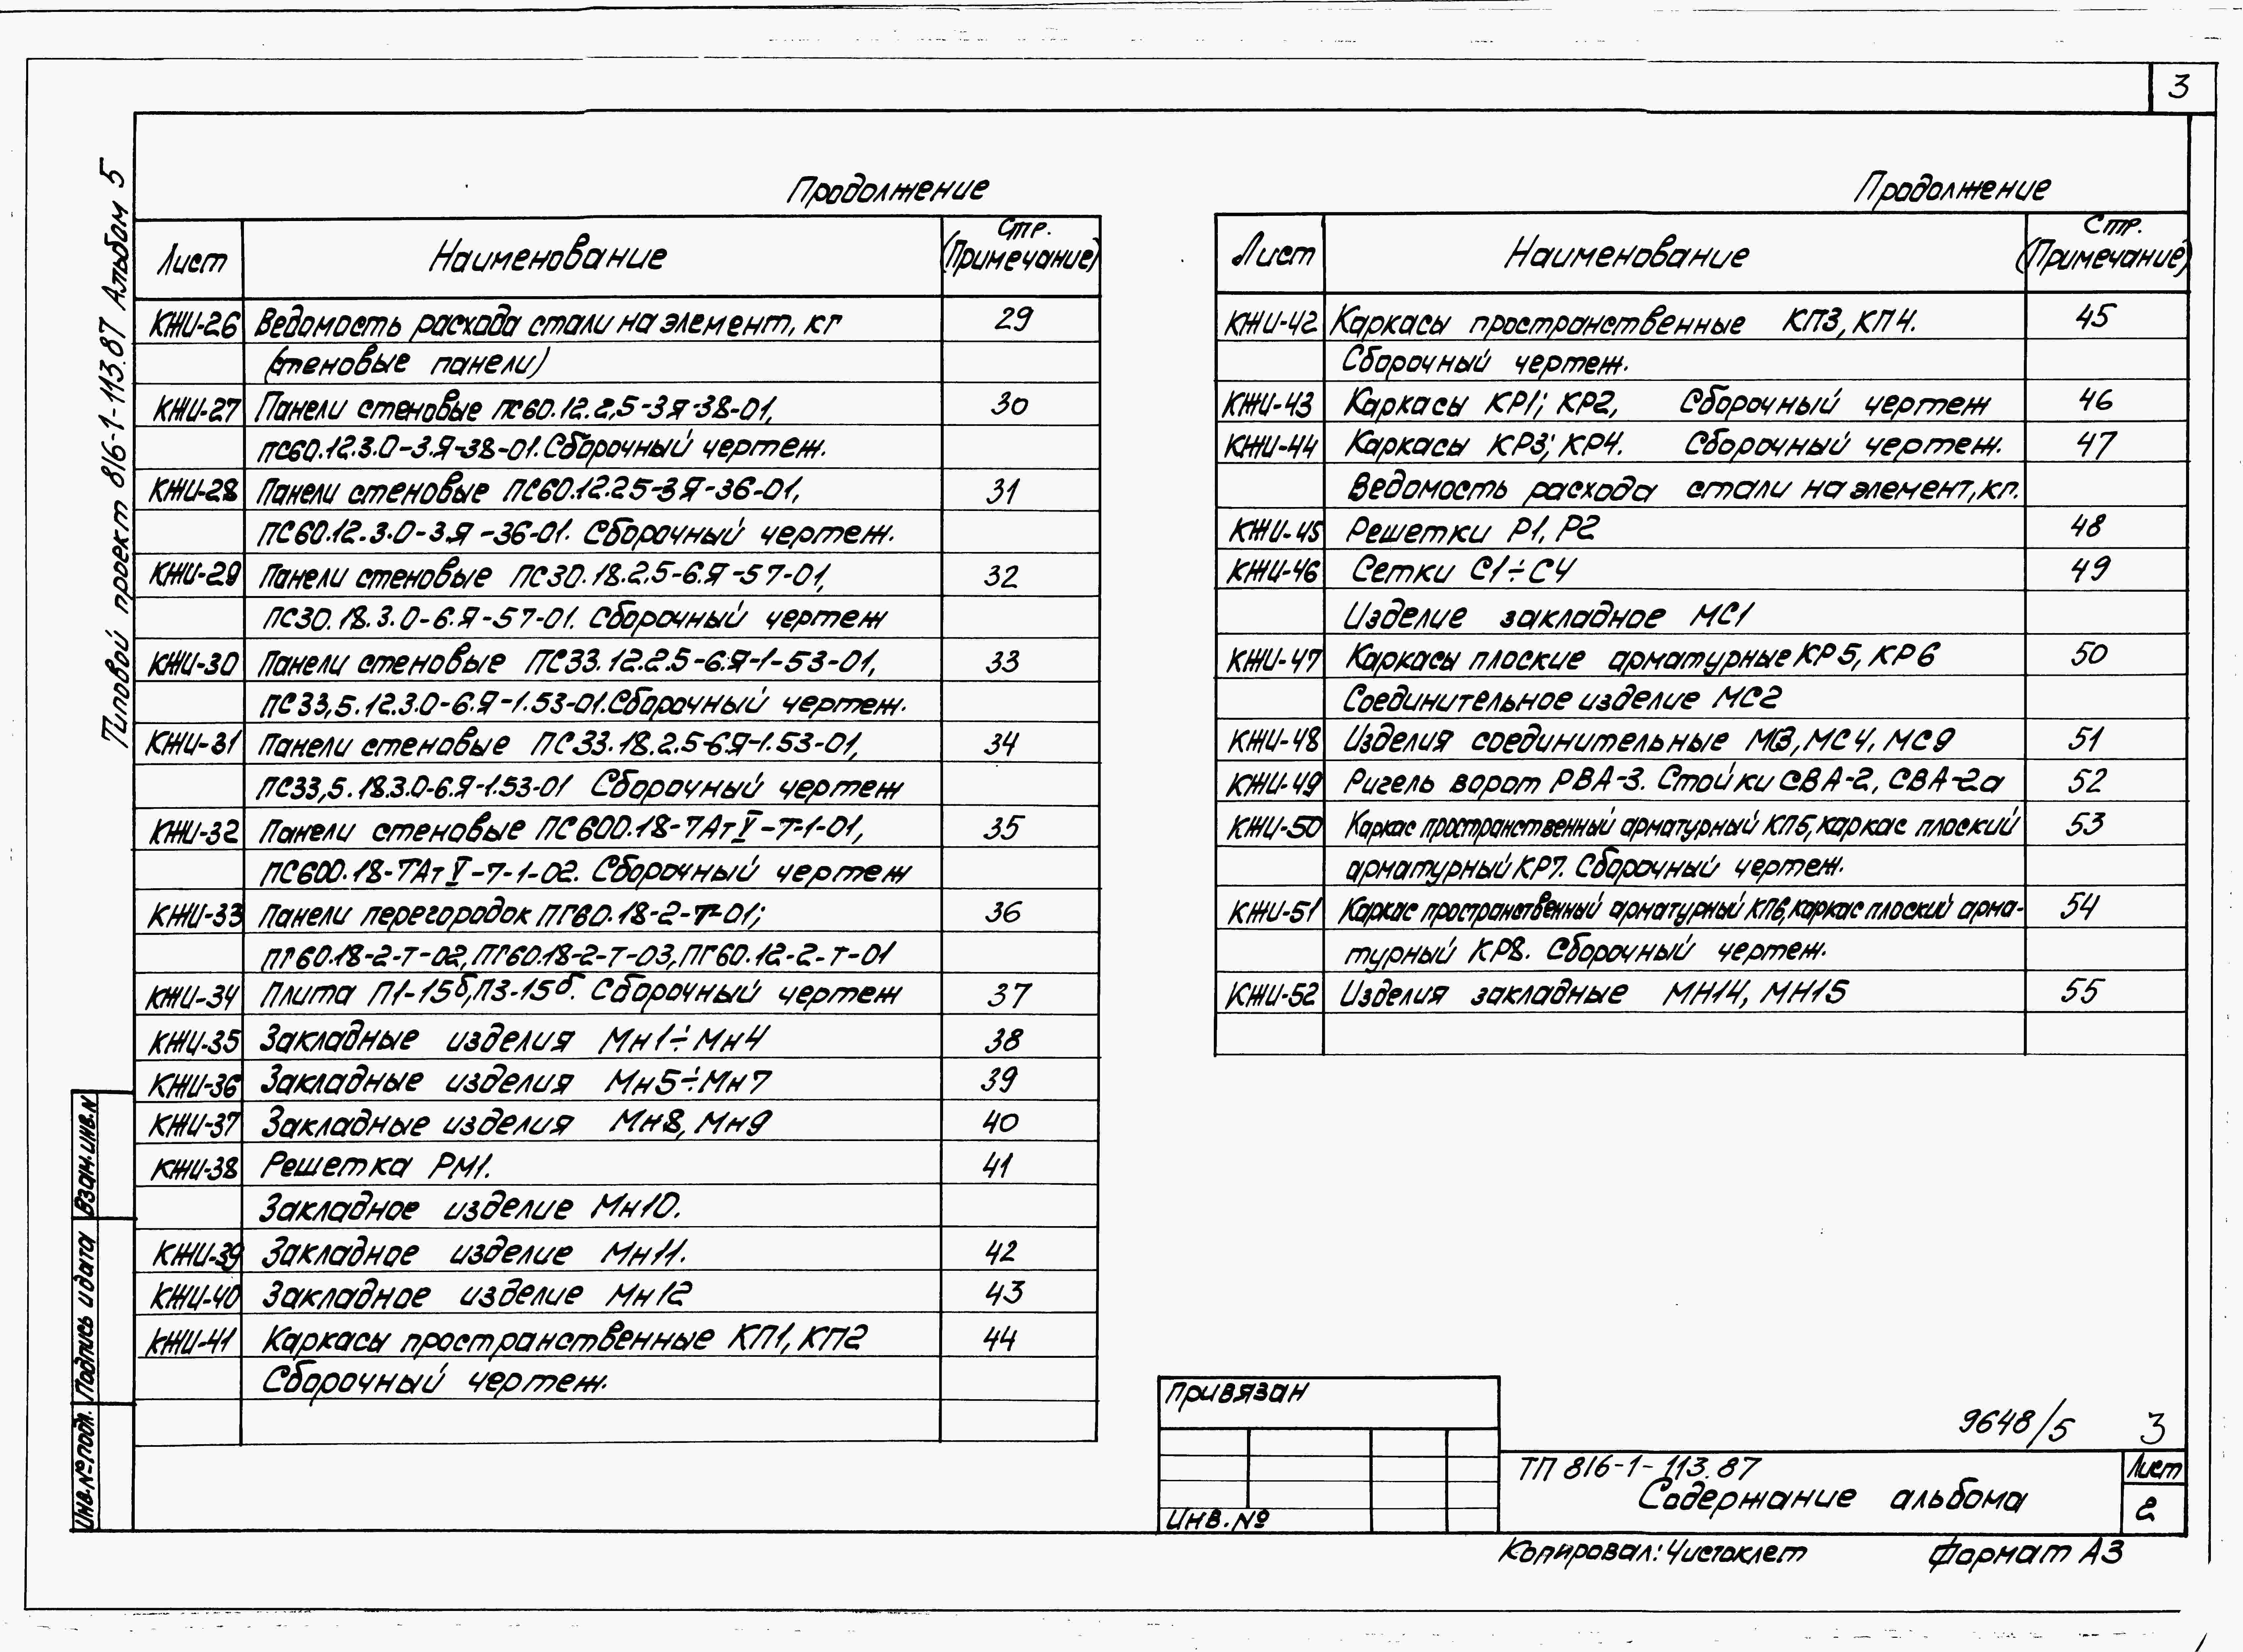 3
Типовой проект 816-1-113.87 Альбом 5
Продолжение
Лист Наименование Стр. (Примечание)
КЖИ-26 Ведомость расхода стали на элемент, кг 29
(стеновые панели)
КЖИ-27 Панели стеновые ПС60.12.2,5-3Я-38-01, 30
ПС60.12.3.0-3.Я-38-01. Сборочный чертеж.
КЖИ-28 Панели стеновые ПС60.12.25-3Я-36-01, 31
ПС60.12.3.0-3.Я-36-01. Сборочный чертеж.
КЖИ-29 Панели стеновые ПС30.18.2.5-6.Я-57-01, 32
ПС30.18.3.0-6.Я-57-01. Сборочный чертеж
КЖИ-30 Панели стеновые ПС33.12.2.5-6.Я-1-53-01, 33
ПС33,5.12.3.0-6.Я-1.53-01. Сборочный чертеж.
КЖИ-31 Панели стеновые ПС33.18.2.5-6.Я-1.53-01, 34
ПС33,5.18.3.0-6.Я-1.53-01 Сборочный чертеж
КЖИ-32 Панели стеновые ПС600.18-7АтV-Т-1-01, 35
ПС600.18-7АтV-7-1-02. Сборочный чертеж
КЖИ-33 Панели перегородок ПГ60.18-2-Т-01; 36
ПГ60.18-2-Т-02, ПГ60.18-2-Т-03, ПГ60.12-2-Т-01
КЖИ-34 Плита П1-15б, П3-15б. Сборочный чертеж 37
КЖИ-35 Закладные изделия Мн1÷Мн4 38
КЖИ-36 Закладные изделия Мн5÷Мн7 39
КЖИ-37 Закладные изделия Мн8, Мн9 40
КЖИ-38 Решетка РМ1. 41
Закладное изделие Мн10.
КЖИ-39 Закладное изделие Мн11. 42
КЖИ-40 Закладное изделие Мн12 43
КЖИ-41 Каркасы пространственные КП1, КП2 44
Сборочный чертеж.
Продолжение
Лист Наименование Стр. (Примечание)
КЖИ-42 Каркасы пространственные КП3, КП4. 45
Сборочный чертеж.
КЖИ-43 Каркасы КР1; КР2, Сборочный чертеж 46
КЖИ-44 Каркасы КР3; КР4. Сборочный чертеж. 47
Ведомость расхода стали на элемент, кг.
КЖИ-45 Решетки Р1, Р2 48
КЖИ-46 Сетки С1÷С4 49
Изделие закладное МС1
КЖИ-47 Каркасы плоские арматурные КР5, КР6 50
Соединительное изделие МС2
КЖИ-48 Изделия соединительные МС3, МС4, МС9 51
КЖИ-49 Ригель ворот РВА-3. Стойки СВА-2, СВА-2а 52
КЖИ-50 Каркас пространственный арматурный КП5, каркас плоский 53
арматурный КР7. Сборочный чертеж.
КЖИ-51 Каркас пространственный арматурный КП6, каркас плоский арма- 54
турный КР8. Сборочный чертеж.
КЖИ-52 Изделия закладные МН14, МН15 55
Взам.инв.N
Подпись и дата
Инв.№ подл.
Привязан
Инв. №
9648/5 3
ТП 816-1-113.87
Содержание альбома
Лист
2
Копировал: Чистоклет Формат А3